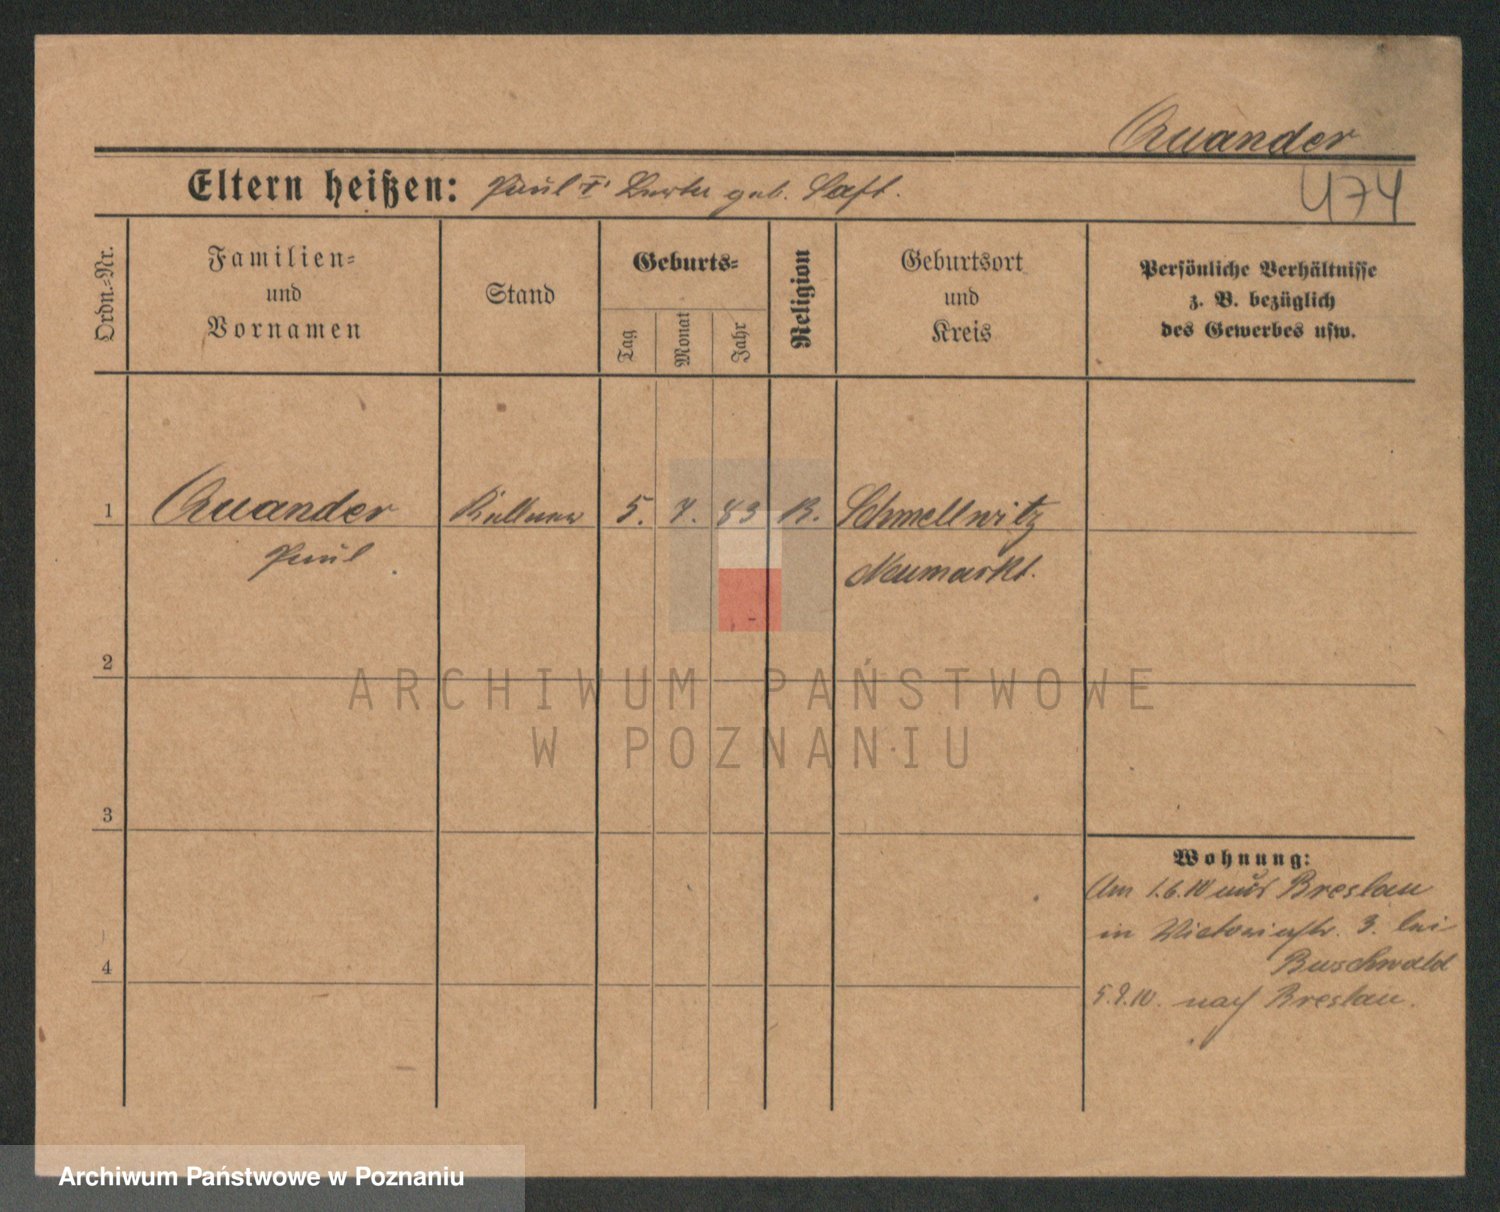 Quander
474
Eltern heißen: Paul u. Bertha geb. Saft.
Ordn.-Nr.
Familien-
und
Vornamen
Stand
Geburts-
Tag
Monat
Jahr
Religion
Geburtsort
und
Kreis
Persönliche Verhältnisse
z. B. bezüglich
des Gewerbes usw.
1 Quander Kellner 5. 7. 83 K. Schmellwitz
Paul
Neumarkt.
2
3
4
Wohnung:
Am 1.6.10 aus Breslau
in Victoriastr. 3. bei
Buschwald
5.9.10. nach Breslau.
ARCHIWUM PAŃSTWOWE
W POZNANIU
Archiwum Państwowe w Poznaniu